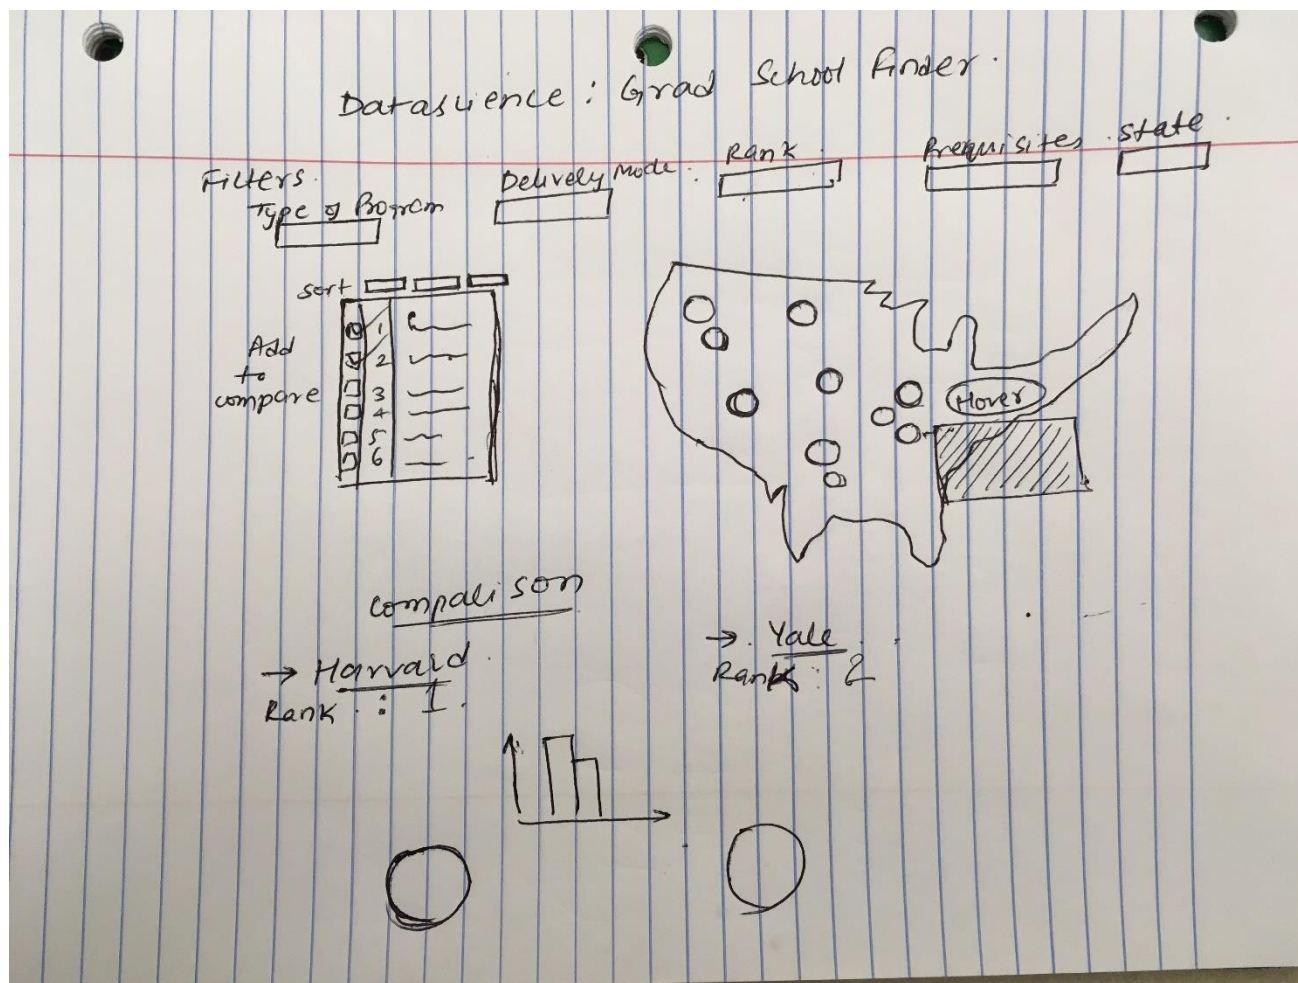 Datascience : Grad School finder.
Filters.
Type of Program
Delivery Mode:
Rank
Prequisites
State
Sort
Add
to
compare
1
2
3
4
5
6
Hover
Comparison
→ Harvard
Rank : 1.
→ Yale
Rank : 2